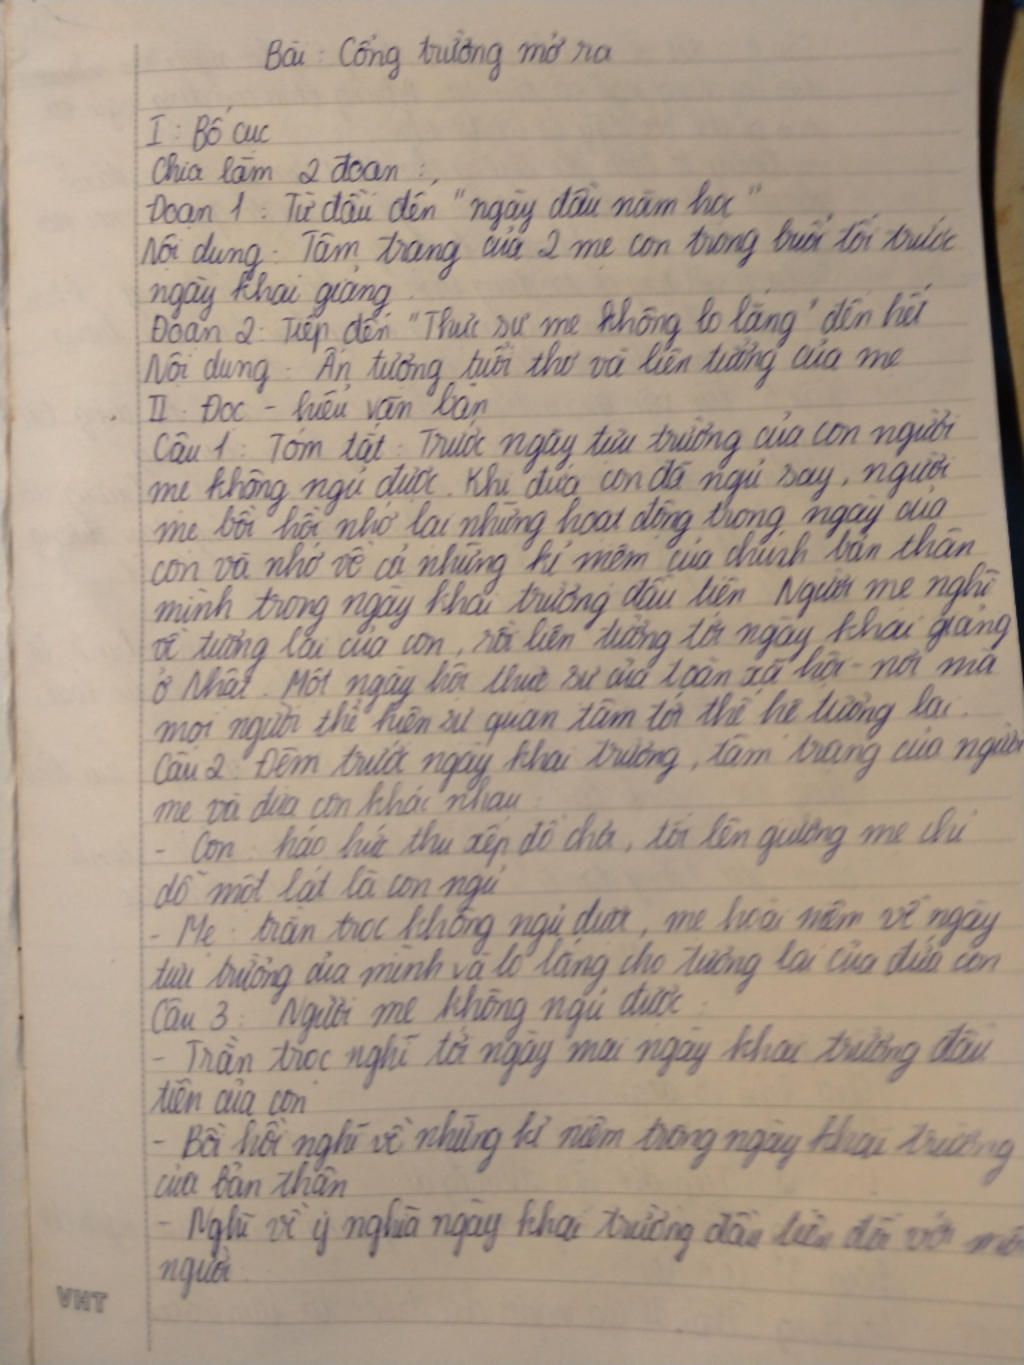 Bài: Cổng trường mở ra
I: Bố cục
Chia làm 2 đoạn:
Đoạn 1: Từ đầu đến "ngày đầu năm học"
Nội dung: Tâm trạng của 2 mẹ con trong buổi tối trước
ngày khai giảng.
Đoạn 2: Tiếp đến "Thực sự mẹ không lo lắng" đến hết
Nội dung: Ấn tượng tuổi thơ và liên tưởng của mẹ
II: Đọc - hiểu văn bản
Câu 1: Tóm tắt: Trước ngày tựu trường của con người
mẹ không ngủ được. Khi đứa con đã ngủ say, người
mẹ bồi hồi nhớ lại những hoạt động trong ngày của
con và nhớ về cả những kỉ niệm của chính bản thân
mình trong ngày khai trường đầu tiên Người mẹ nghĩ
về tương lai của con, rồi liên tưởng tới ngày khai giảng
ở Nhật. Một ngày hội thực sự của toàn xã hội - nơi mà
mọi người thể hiện sự quan tâm tới thế hệ tương lai.
Câu 2: Đêm trước ngày khai trường, tâm trạng của người
mẹ và đứa con khác nhau:
- Con: háo hức thu xếp đồ chơi, tối lên giường mẹ chỉ
dỗ một lát là con ngủ
- Mẹ: trằn trọc không ngủ được, mẹ hoài niệm về ngày
tựu trường của mình và lo lắng cho tương lai của đứa con
Câu 3: Người mẹ không ngủ được:
- Trằn trọc nghĩ tới ngày mai ngày khai trường đầu
tiên của con
- Bồi hồi nghĩ về những kỉ niệm trong ngày khai trường
của bản thân
- Nghĩ về ý nghĩa ngày khai trường đầu tiên đối với mỗi
người.
VHT